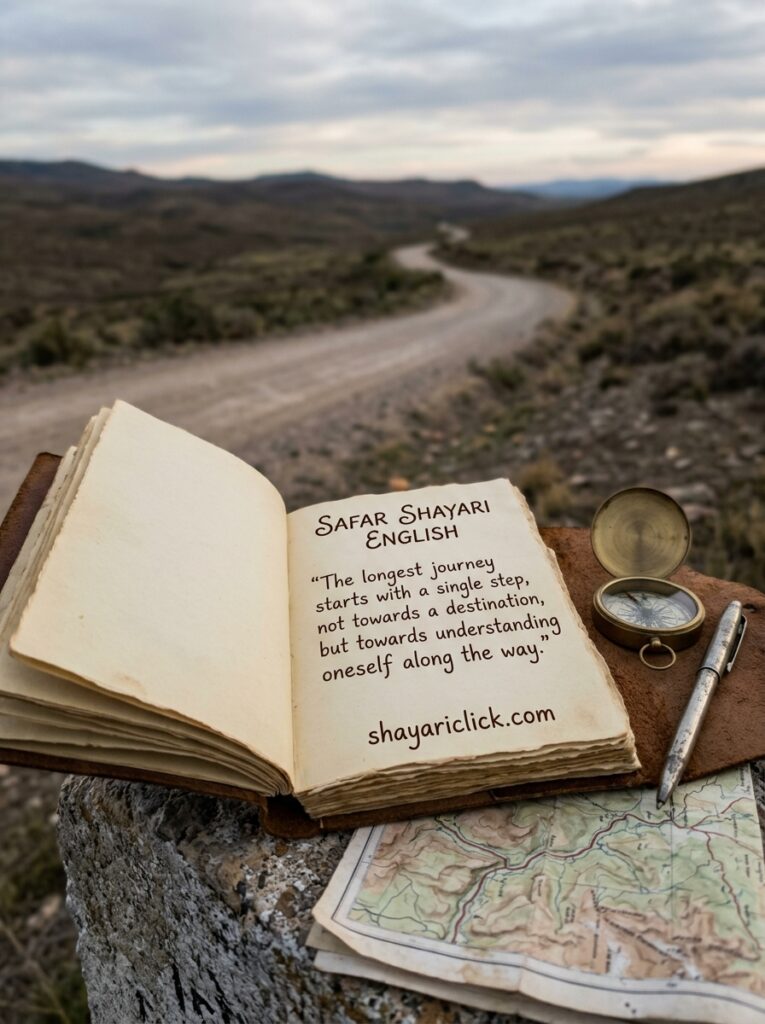 SAFAR SHAYARI
ENGLISH
“The longest journey
starts with a single step,
not towards a destination,
but towards understanding
oneself along the way.”
shayariclick.com